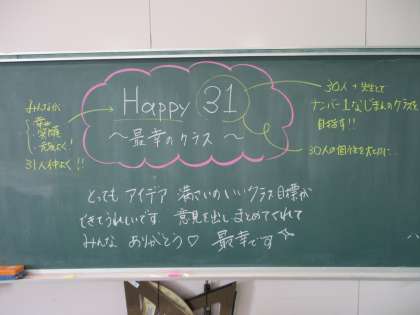 Happy 31
～最幸のクラス～
みんなが
・幸せ
・笑顔
・元気よく!
31人仲よく!!
30人+先生で
ナンバー1なじまんのクラスを
目指す!!
30人の個性を大切に…
とっても アイデア 満さいの いい クラス目標が
できてうれしいです 意見を出し まとめてくれて
みんな ありがとう♡ 最幸です☆